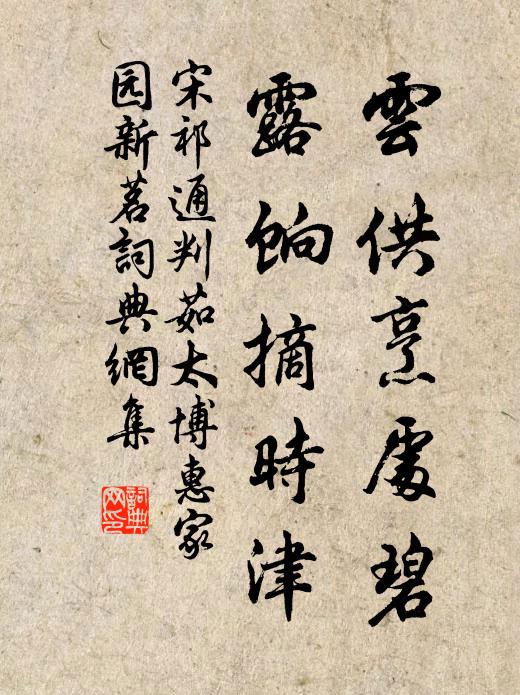 雲供烹處碧
露餉摘時津
宋祁通判茹太博惠家
园新茗詞典網集
詞典网印